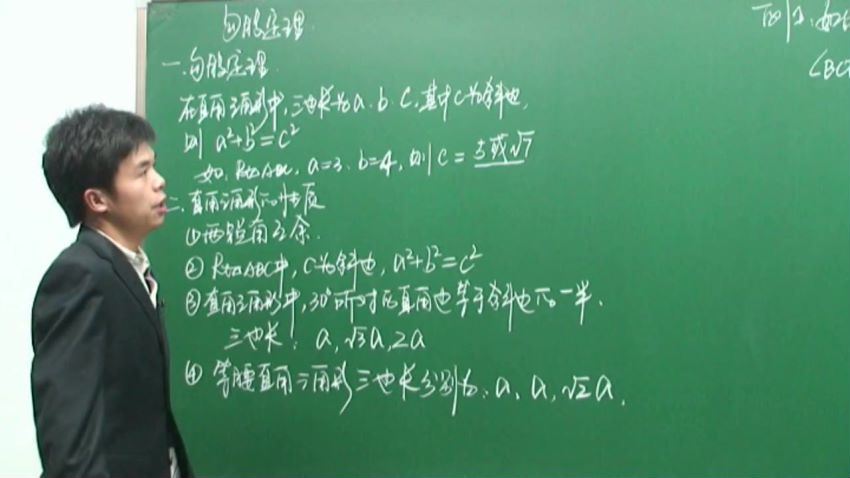 勾股定理
一.勾股定理
在直角三角形中,三边长为a.b.c,其中c为斜边,
则 a²+b²=c²
如:Rt△ABC, a=3. b=4, 则 c=5或√7
二.直角三角形的性质
①两锐角互余.
②Rt△ABC中,c为斜边,a²+b²=c²
③直角三角形中,30°所对的直角边等于斜边的一半.
三边长: a,√3a,2a
④等腰直角三角形三边长分别为:a, a,√2a.
例1.如